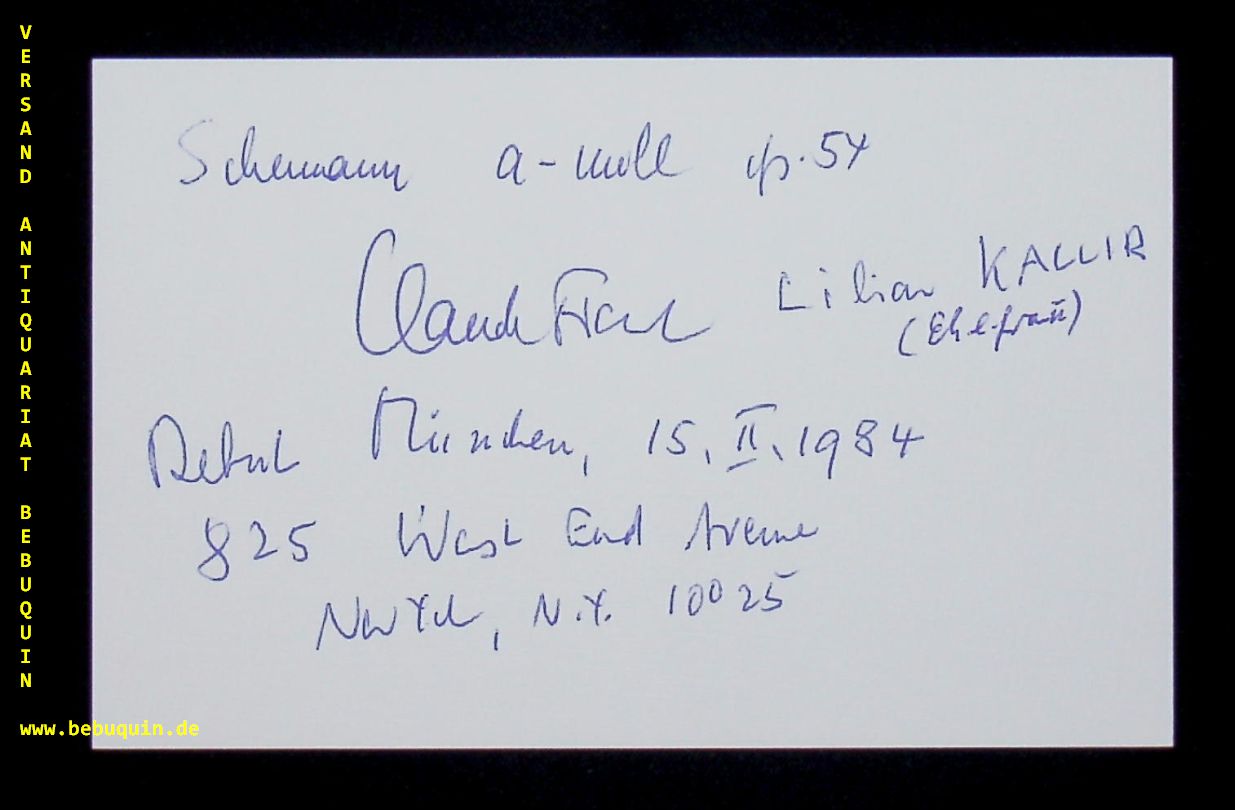 VERSAND ANTIQUARIAT BEBUQUIN
www.bebuquin.de
Schumann a-moll op. 54
Claude Frank Lilian KALLIR
(Ehefrau)
Debut München, 15. II. 1984
825 West End Avenue
New York, N.Y. 10025